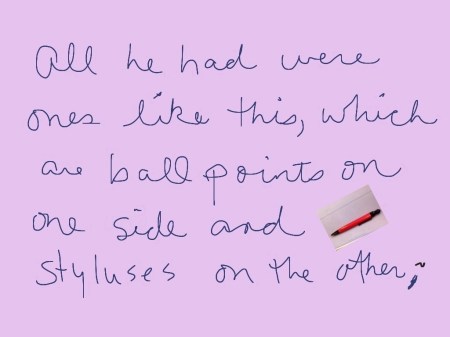 All he had were
ones like this, which
are ball points on
one side and
styluses on the other;